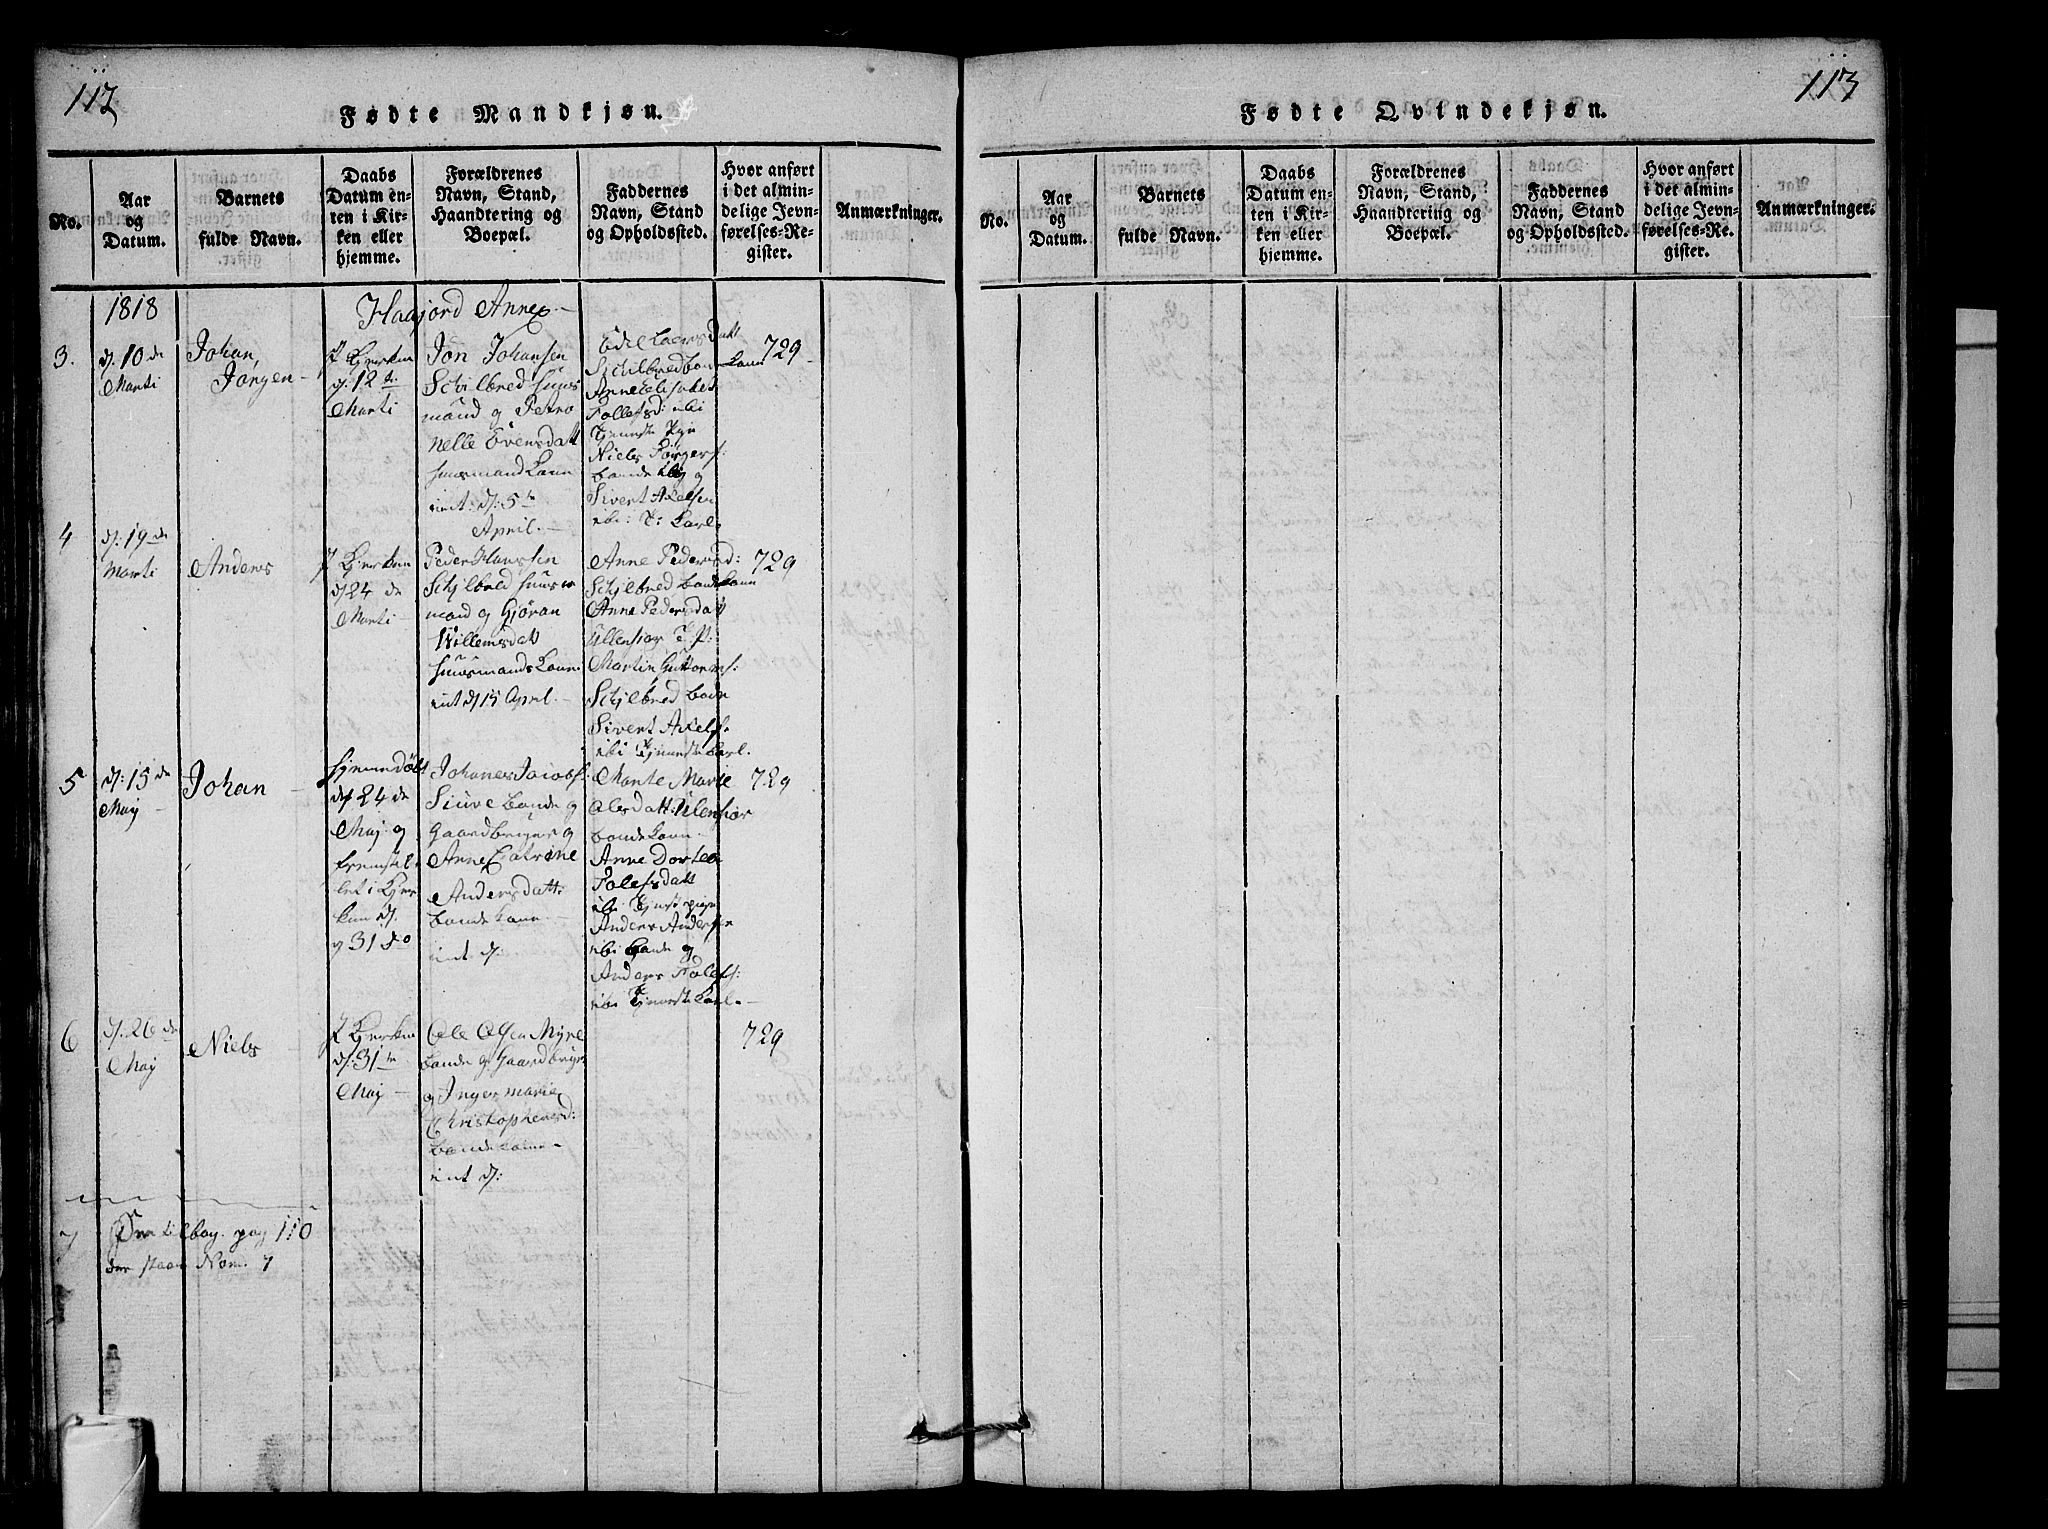 112
Fødte Mandkjøn.
No.
Aar
og
Datum.
Barnets
fulde Navn.
Daabs
Datum en-
ten i Kir-
ken eller
hjemme.
Forældrenes
Navn, Stand,
Haandtering og
Boepæl.
Faddernes
Navn, Stand
og Opholdssted.
Hvor anført
i det almin-
delige Jevn-
førelses-Re-
gister.
Anmærkninger.
1818
Annex
3.
d: 10 de
Marti
Johan,
Jørgen
I Kjerken
d: 12 te
Marti
Jon Johansen
Schilbred Huus
mand og Petro
nelle Evensdatt
huusmand Kone
int: d: 5 te
April.
Schilbred bonde Kone
Anne Elisabet
Tollefsd: ibi
Tjeneste Pige
Niels
bonde ibi og
Sivert Axelsen
ibi: T: Karl
729
4
d: 19 de
Marti
Anders
I Kjerken
d 24 de
Marti
Peder Hansen
Schjlbred huus
mand og Gjøran
Willemsdatt
huusmands Kone
int d 15 April
Anne Pedersd:
Schjlbred bonde Kone
Anne Pedersdatt
Ullensior T. P:
Martin Guttorms:
Schjlbred bonde
Sivert Axelss:
ibi Tjenneste Karl.
729
5
d: 15 de
Maj
Johan
Hjemmedøbt
d 24 de
Maj og
fremstil
let i Kjer
ken d.
31 do
Johanes Jacobs:
bonde og
Gaardbruger og
Anne Catrine
Andersdatt:
bonde kone
int d:
Marte Marie
Olesdatt: Ulensior
bonde kone
Anne Dortea
Tolefsdatt
ibi Tjenst pige
Anders Anders
ibi bonde og
Anders Tolefs:
ibi Tjeneste Karl.
729
6
d: 26 de
Maj
Niels
I Kjerken
d: 31 te
Maj
Ole Olsen Myre
bonde og Gaardbruger
og Inger marie
Christophersd:
bonde kone
int d:
729
7
tilbag. pag 110
der staar Nom. 7
113
Fødte Qvindekjøn.
No.
Aar
og
Datum.
Barnets
fulde Navn.
Daabs
Datum en-
ten i Kir-
ken eller
hjemme.
Forældrenes
Navn, Stand,
Haandtering og
Boepæl.
Faddernes
Navn, Stand
og Opholdssted.
Hvor anført
i det almin-
delige Jevn-
førelses-Re-
gister.
Anmærkninger.